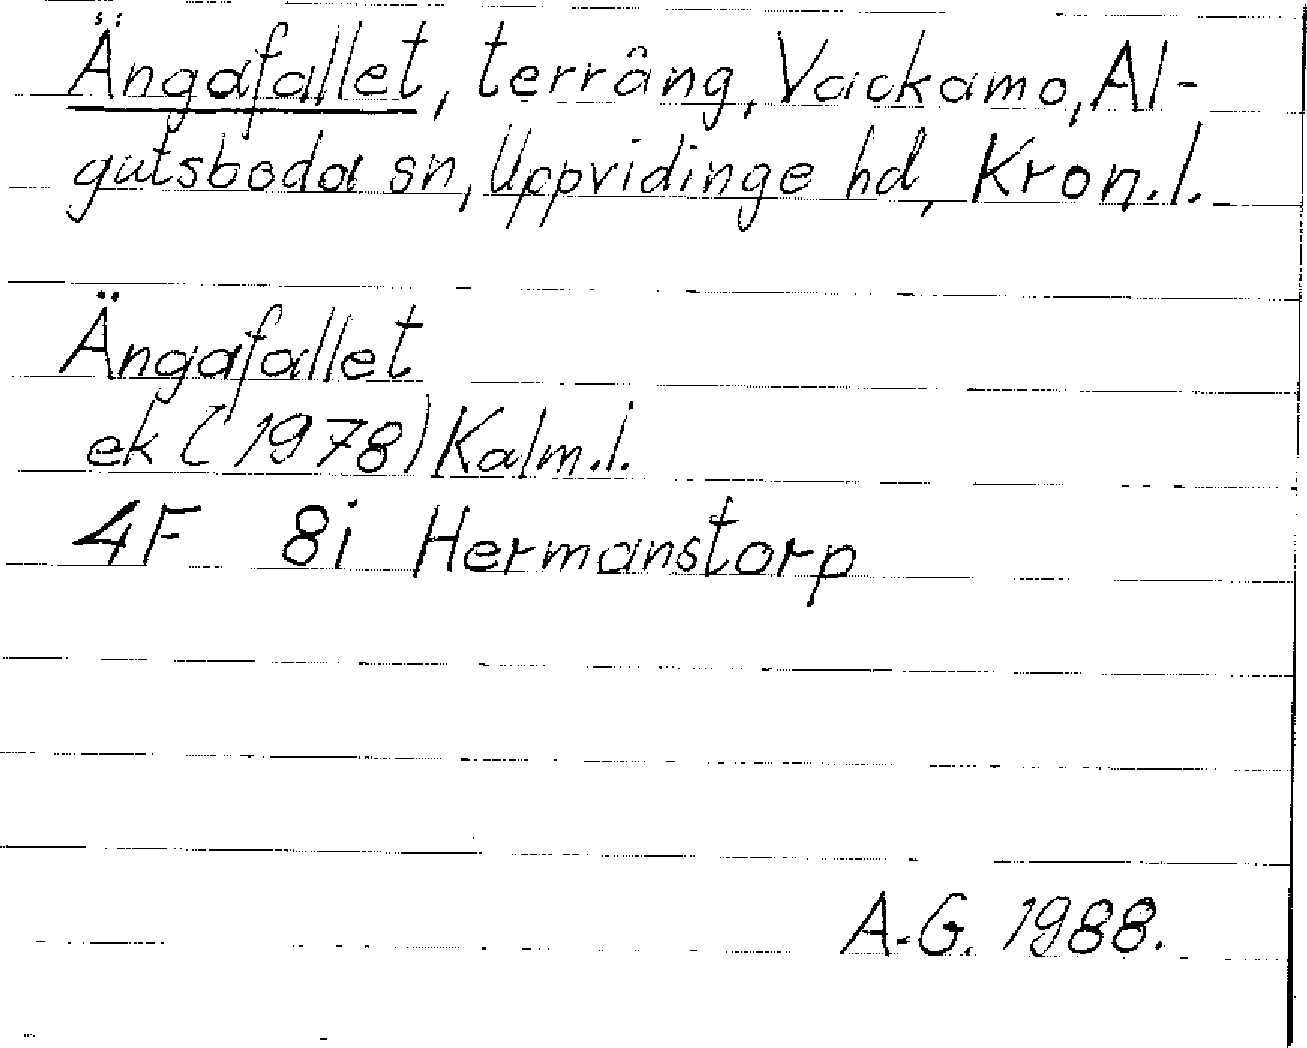 Ängafallet, terräng, Vackamo, Al-
gutsboda sn, Uppvidinge hd, Kron.l.
Ängafallet
ek (1978) Kalm.l.
4F 8i Hermanstorp
A.G. 1988.